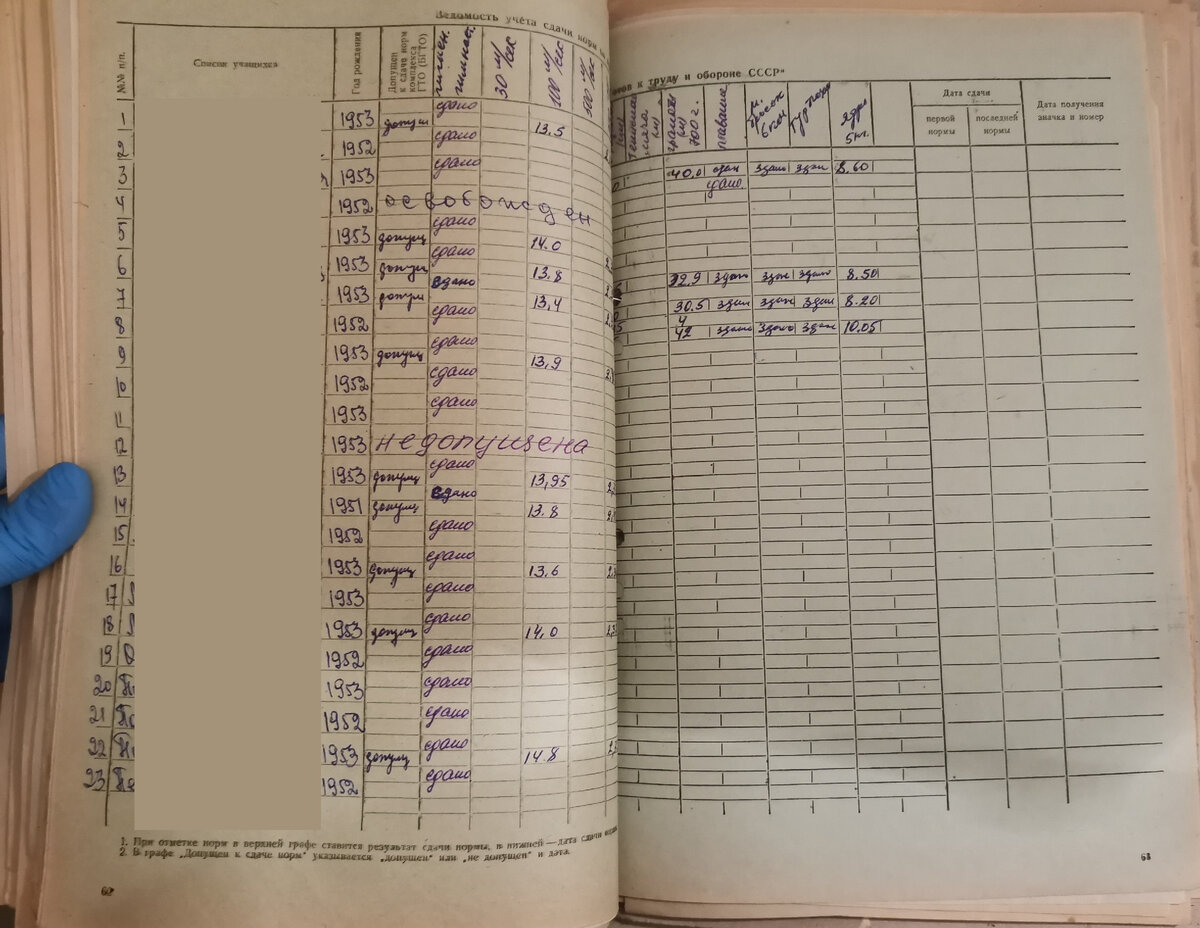 Ведомость учёта сдачи норм
№№ п/п. Список учащихся Год рождения Допущен к сдаче норм комплекса ГТО (БГТО) гигиен. гимнаст. 30 м/сек 100 м/сек 500 м/сек
1 1953 допущ сдано 13,5
2 1952 сдано
3 1953 сдано
4 1952 освобожден
5 1953 допущ сдано 14.0
6 1953 допущ сдано 13,8
7 1953 допущ сдано 13,4
8 1952 сдано
9 1953 допущ сдано 13,9
10 1952 сдано
11 1953 сдано
12 1953 недопущена
13 1953 допущ сдано 13,95
14 1951 допущ сдано 13.8
15 1952 сдано
16 1953 допущ сдано 13,6
17 1953 сдано
18 1953 допущ сдано 14,0
19 1952 сдано
20 1953 сдано
21 1952 сдано
22 1953 допущ сдано 14.8
23 1952 сдано
1. При отметке норм в верхней графе ставится результат сдачи нормы, в нижней — дата сдачи
2. В графе „Допущен к сдаче норм" указывается „допущен" или „не допущен" и дата.
60
к труду и обороне СССР"
мяча гранаты 700 г. плавание ядро 5 кг. Дата сдачи первой нормы последней нормы Дата получения значка и номер
40.0 сдан здано здан 8.60
сдано
32.9 здано здан здано 8.50
30.5 здан здан здан 8.20
42 здано здано здан 10.05
63